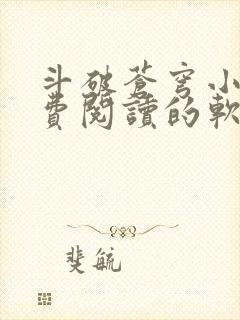 斗破蒼穹小
費閱讀的軟
斐毓